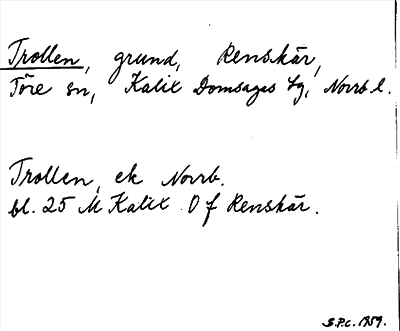 Trollen, grund, Renskär,
Töre sn, Kalix Domsagas tg, Norrb l.
Trollen, ek Norrb.
bl. 25 M Kalix O f Renskär.
S.P.C. 1959.